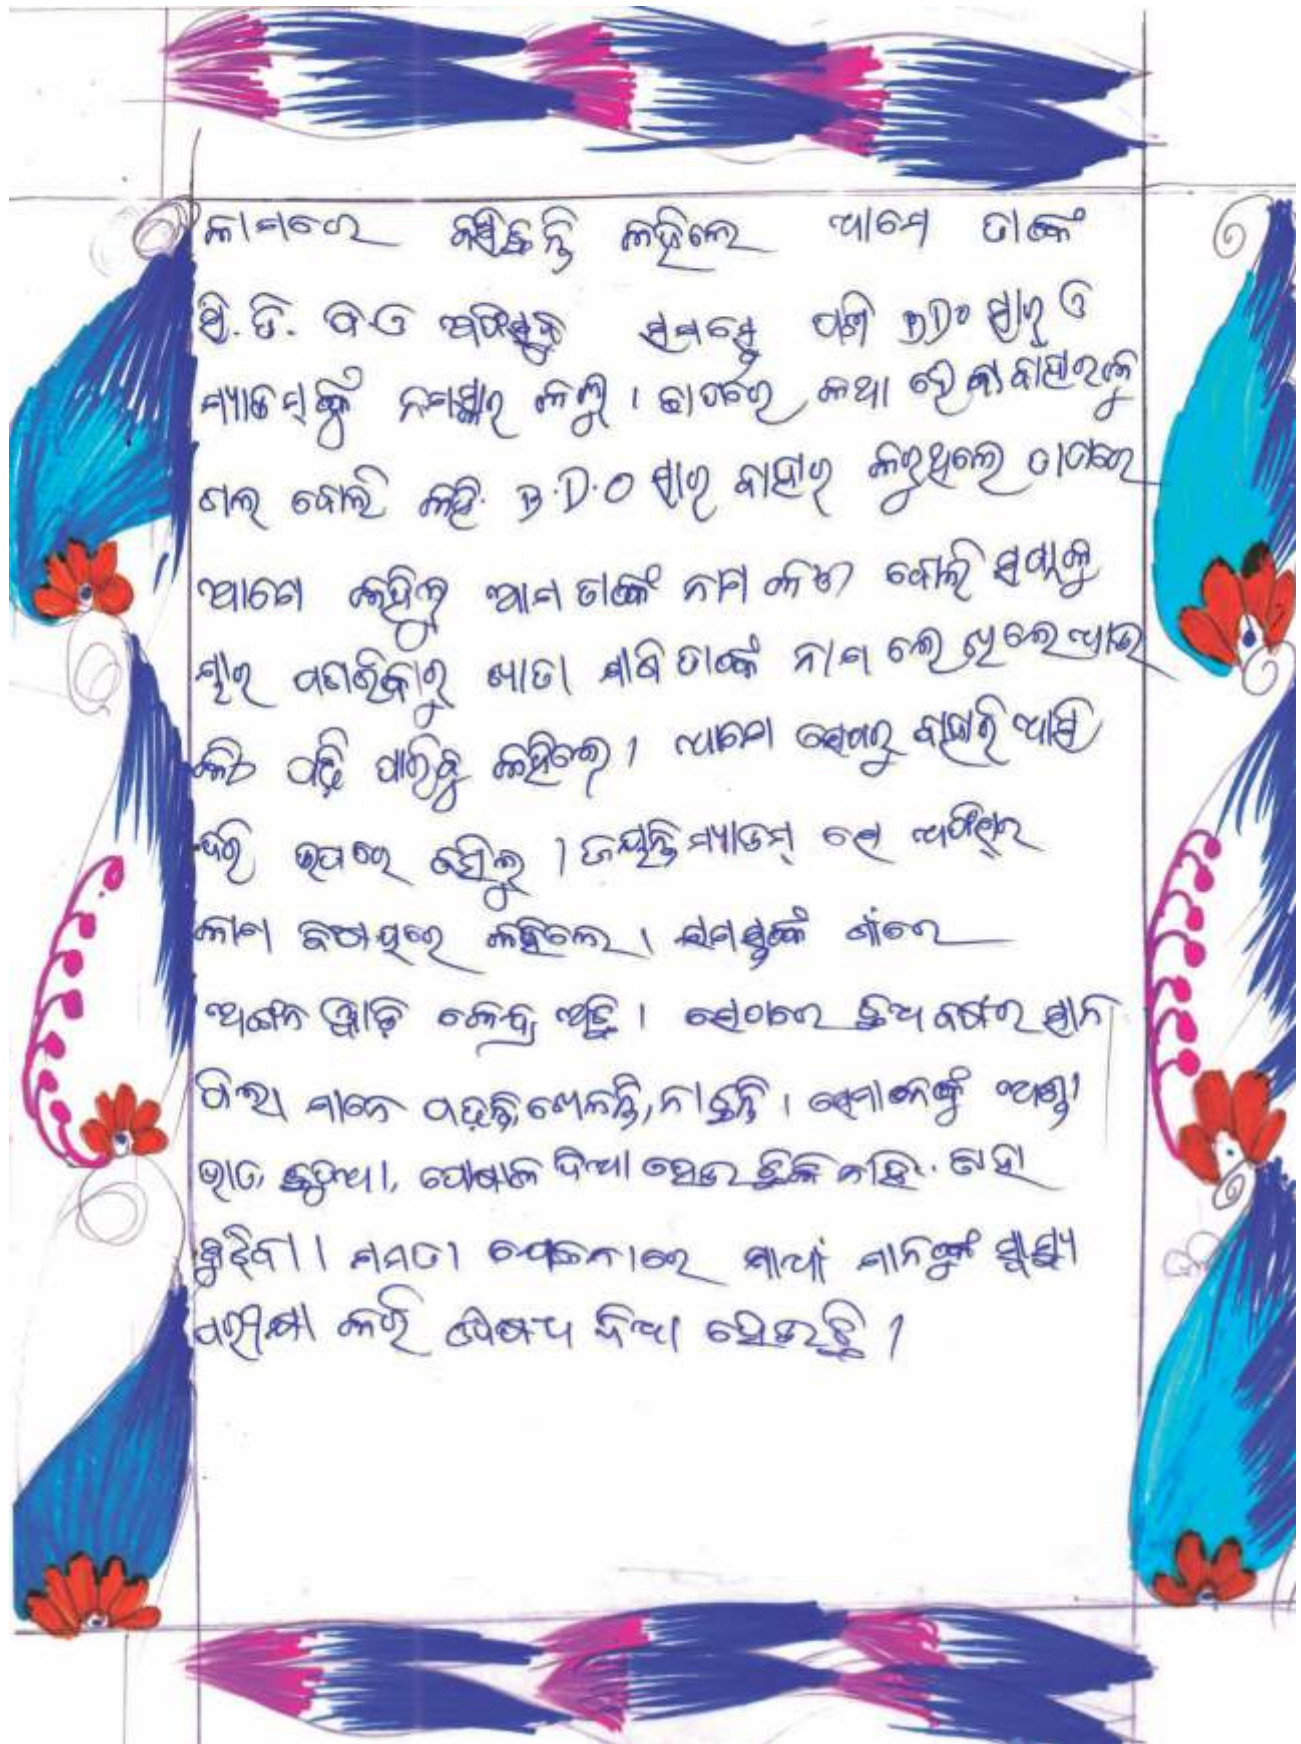 କାମରେ ବସିଛନ୍ତି କହିଲେ ଆମେ ତାଙ୍କ
ସି.ଡି. ପିଓ ଅଫିସକୁ ସମସ୍ତେ ପଶି BDO ସାର୍ ଓ
ମ୍ୟାଡମ୍‌ଙ୍କୁ ନମସ୍କାର କଲୁ । ତାପରେ କଥା ହେବା ବାହାରକୁ
ଗଲ ବୋଲି କହି B.D.O ସାର୍ ବାହାର୍ କରୁଥିଲେ ତାପରେ
ଆମେ କହିଲୁ ଆମ ତାଙ୍କ ନାମ କଣ ବୋଲି
ସାର୍ ପଚାରିବାରୁ ଖାତା ମାଗି ତାଙ୍କ ନାମ ଲେଖିଲେ ଆଉ
କିଛି ପଢ଼ି ପାରିବୁ କହିଲେ । ଆମେ ସେଠାରୁ ବାହାରି ଆସି
ଦରି ଉପରେ ବସିଲୁ । ଜୟନ୍ତି ମ୍ୟାଡମ୍ ସେ ଅଫିସ୍‌ର
କାମ ବିଷୟରେ କହିଲେ । ସମସ୍ତଙ୍କ ଗାଁରେ
ଅଙ୍ଗନ ୱାଡ଼ି କେନ୍ଦ୍ର ଅଛି । ସେଠାରେ ଛଅ ବର୍ଷର ସାନ
ପିଲା ମାନେ ପଢ଼ନ୍ତି, ଖେଳନ୍ତି, ନାଚନ୍ତି । ସେମାନଙ୍କୁ ଅଣ୍ଡା
ଭାତ, ଛତୁଆ, ପୋଷାକ ଦିଆ ହେଉଛି କି ନାହିଁ ତାହା
ବୁଝିବା । ମମତା ଯୋଜନାରେ ମାଆ ମାନଙ୍କୁ ସ୍ୱାସ୍ଥ୍ୟ
ପରୀକ୍ଷା କରି ଔଷଧ ଦିଆ ହେଉଛି ।